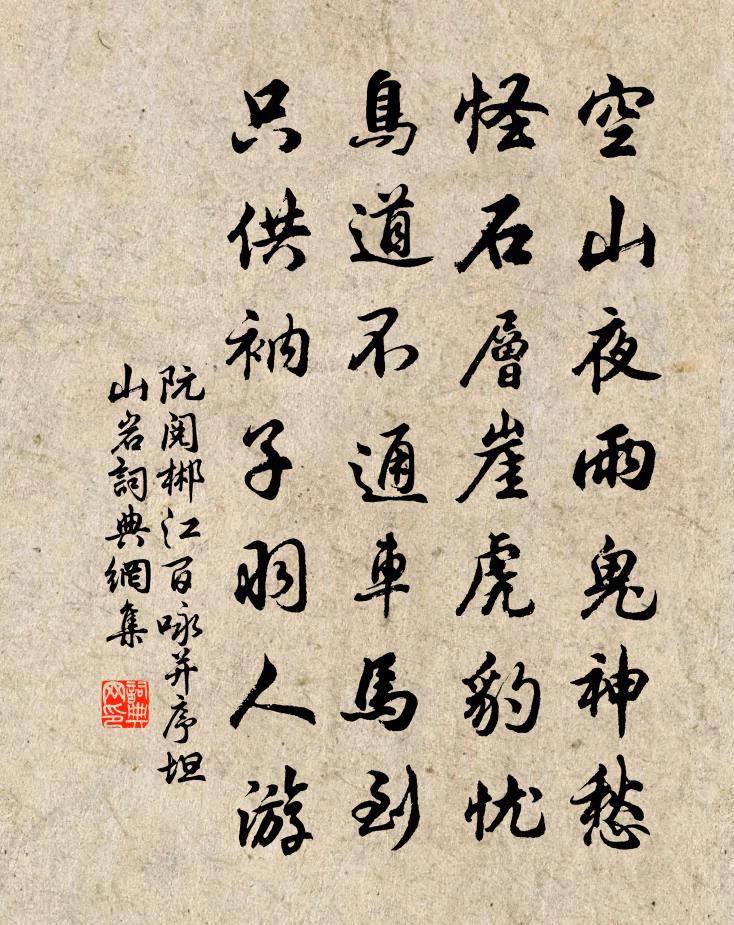 空山夜雨鬼神愁
怪石層崖虎豹忧
鳥道不通車馬到
只供衲子羽人游
阮閱郴江百咏并序坦
山岩詞典網集
詞典网印